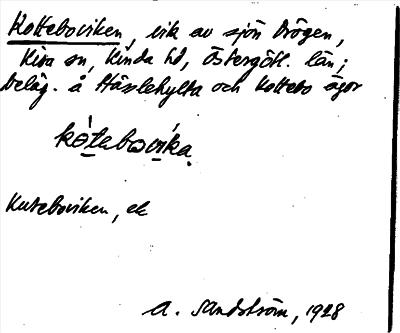 Kotteboviken, vik av sjön Drögen,
Kisa sn, Kinda hd, Östergötl. län;
beläg. å Hässlehylta och Kottebo ägor
kótebovika
Kuteboviken, ek
A. Sandström, 1928